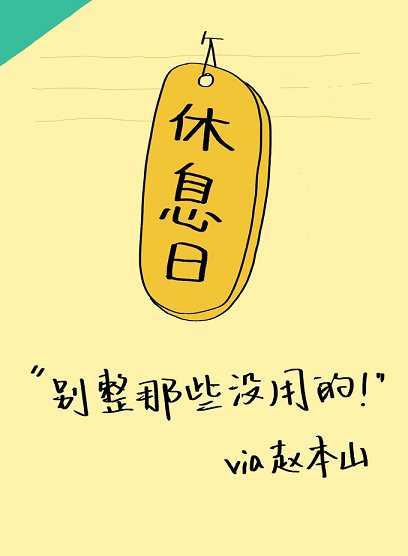 休息日
“别整那些没用的!”
via 赵本山